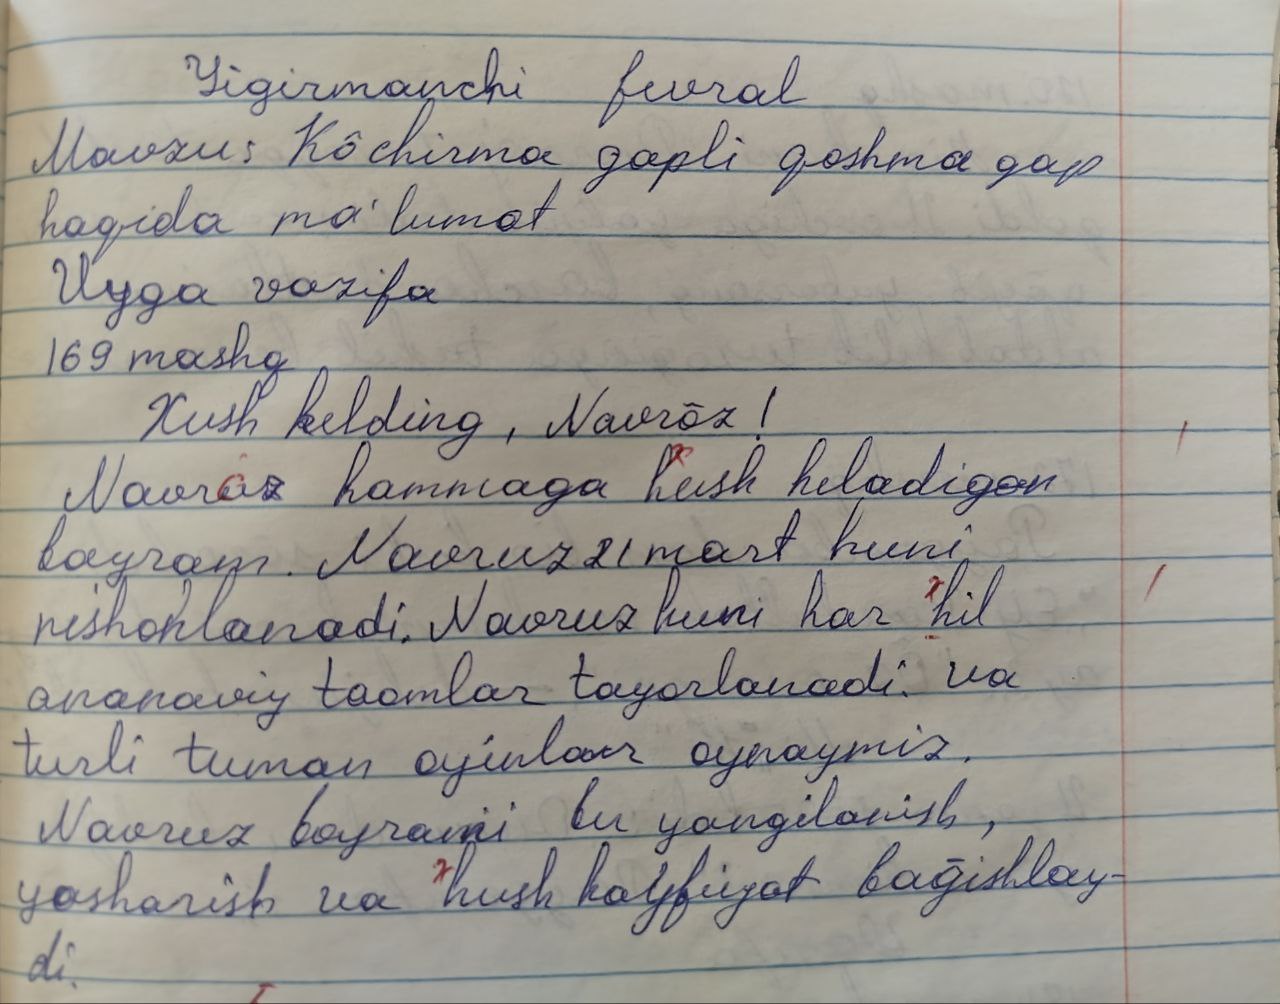 Yigirmanchi fevral
Mavzu: Kôchirma gapli qoshma gap
haqida ma'lumot
Uyga vazifa
169 mashq
Xush kelding, Navrōz!
Navrōz hammaga hush keladigan
bayram. Navruz 21 mart kuni
nishonlanadi. Navruz kuni har hil
ananaviy taomlar tayorlanadi. va
turli tuman oyinlar oynaymiz.
Navruz bayrami bu yangilanish,
yosharish va hush kayfiyat bağishlay-
di.